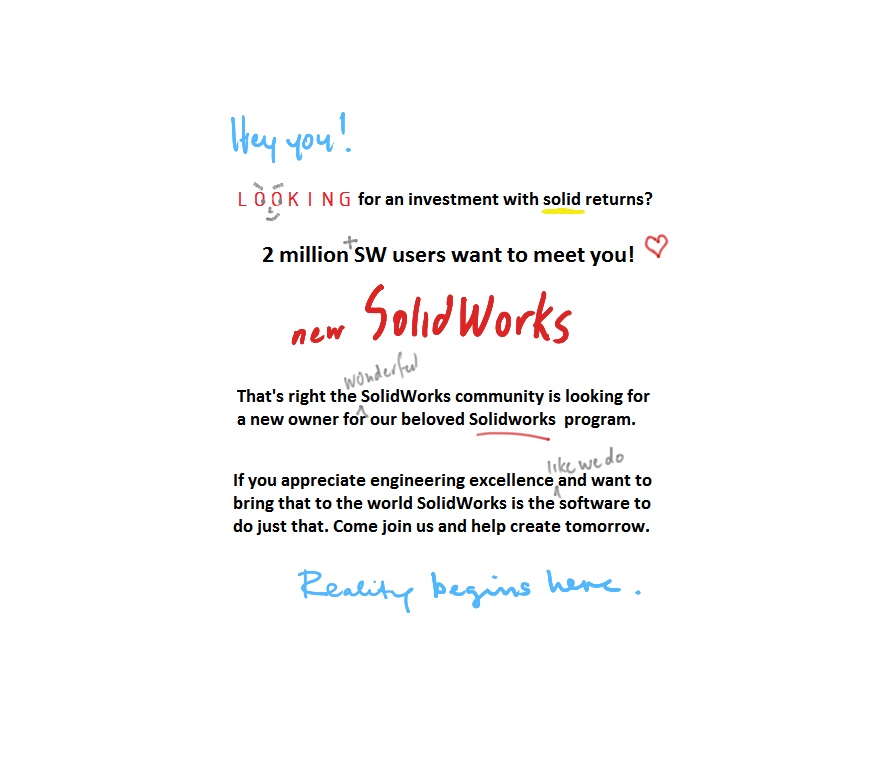 Hey you!
LOOKING for an investment with solid returns?
2 million+ SW users want to meet you!
new SolidWorks
wonderful
That's right the SolidWorks community is looking for
a new owner for our beloved Solidworks program.
like we do
If you appreciate engineering excellence and want to
bring that to the world SolidWorks is the software to
do just that. Come join us and help create tomorrow.
Reality begins here.